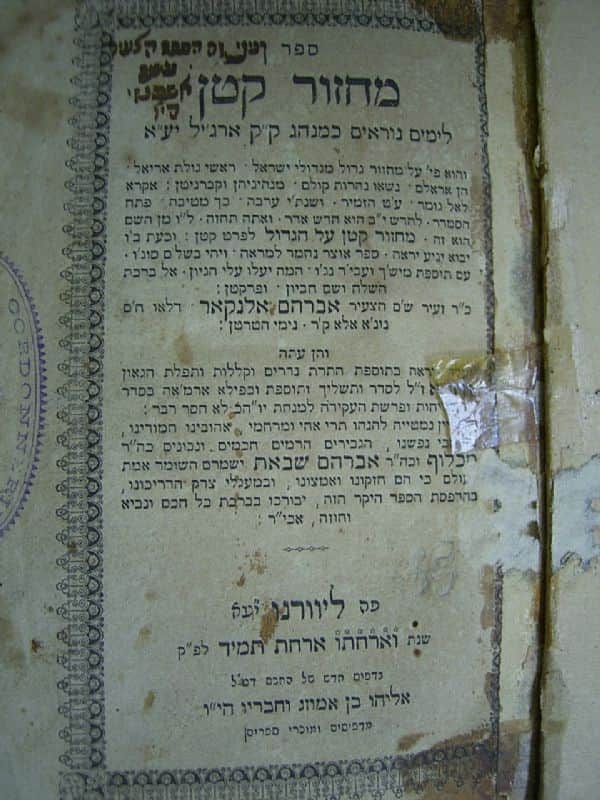 ספר
מחזור קטן
לימים נוראים כמנהג ק״ק ארג׳יל יע״א
והוא פי׳ על מחזור גדול מגדולי ישראל · ראשי גולת אריאל ·
הן אראלם · נשאו נהרות קולם · מנהיגיהן וקברניטן : אקרא
לאל גומר · ע׳ט הזמיר · ושנת׳י ערבה · כך מטיבה · פתח
הסמדר · לחדש י״ב הוא חדש אדר · ואתה תחזה · ל״ו מן השם
הוא זה · מחזור קטן על הגדול לפרט קטן : וכעת ב׳ו
יבוא יגיע יראה · ספר אוצר נחמד למראה · ויהי בשלם סוכ׳ו ·
עם תוספת מיש׳ך ועבי׳ר נג׳ו · המה יעלו עלי הגיון · אל ברכת
השלח ושם חביון · ופרקטן :
כ״ר זעיר ש״ם הצעיר אברהם אלנקאר · דלאו ח׳ם
גוג׳א אלא ק׳ר · נימי הטרטן :
והן עתה
יראה בתוספת התרת נדרים וקללות ותפלת הגאון
ז״ל לסדר ותשליך ותוספת ובפילא ארמ׳אה בסדר
ופרשת העקידה למנחת יו״הכ לא חסר דבר :
נסטייה להנהו תרי אחי ומרחמי · אהובינו חמודינו,
נפשנו, הגבירים הרמים חכמים · ונבונים כה״ר
מכלוף וכה״ר אברהם שבאת ישמרם השומר אמת
עולם כי הם חזקונו ואמצונו, ובמעגלי צדק הדריכונו,
בהדפסת הספר היקר הזה, יבורכו בברכת כל חכם ונביא
וחוזה, אכי״ר :
פה ליוורנו יע״א
שנת וארחתו ארחת תמיד לפ״ק
בדפוס חדש של החכם
אליהו בן אמוזג וחביריו הי״ו
מדפיסים ומוכרי ספרים
GORDONN